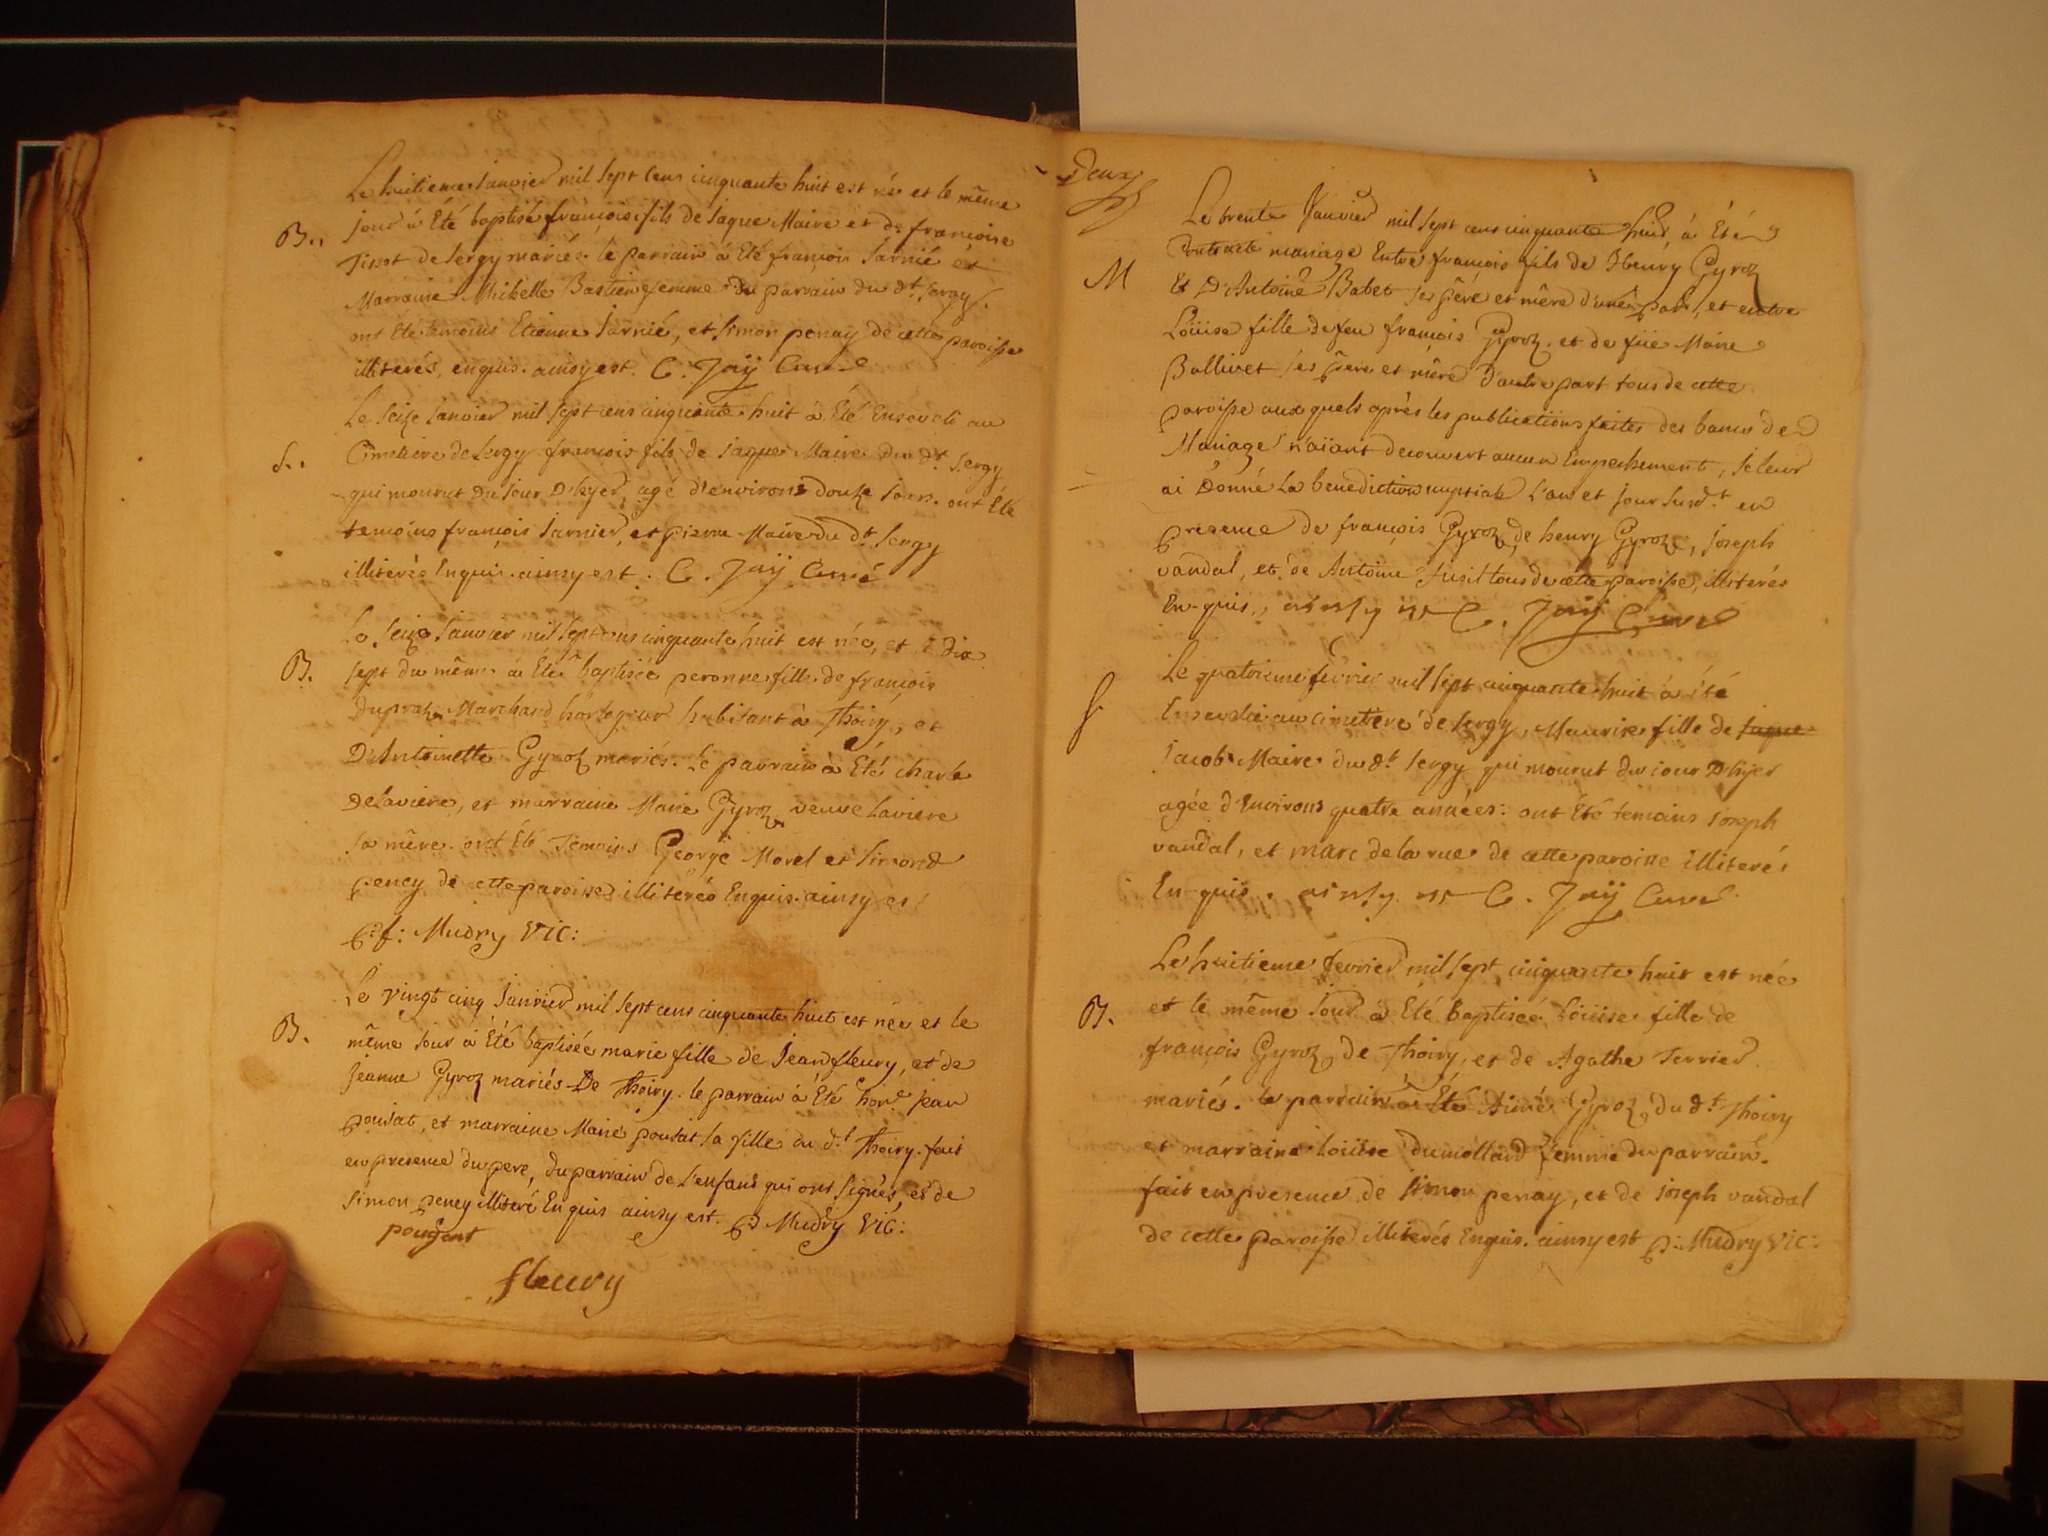 Le huitieme Janvier mil sept cens cinquante huit est né et le même
B. jour à Eté baptisé françois fils de Jaque Maire et de françoise
Tissot de Sergy mariés. le parrain à Eté françois Jarnié et
Marraine Michelle Bastien femme du parrain du dt. Sergy.
ont été temoins Etienne Jarnié, et Simon penay de cette paroisse
illiterés, enquis. ainsy est. C. Jaÿ Curé
Le seize Janvier mil sept cens cinquante huit à Eté Enseveli au
S. Cimetiere de Sergy françois fils de Jaque Maire du dt. Sergy
qui mourut du jour D'hyer, agé d'environs douze jours. ont Eté
temoins françois Jarnier, et pierre Maire du dt. Sergy
illiterés Enquis. ainsy est. C. Jaÿ Curé
Le seize Janvier mil sept cens cinquante huit est née, et l dix
B. sept du même à Eté baptisée peronne fille de françois
Dupraz Marchand horlogeur habitant à Thoiry, et
D'Antoinette Gyroz mariés. le parrain à Eté charle
Delaviere, et marraine Marie Gyroz veuve Laviere
sa mêre. ont Eté Temoins George Morel et Simond
peney de cette paroisse illiterés Enquis. ainsy est
p: f: Mudry VIC:
Le vingt cinq Janvier mil sept cens cinquante huit est née et le
B. même jour à Eté baptisée marie fille de Jean fleury, et de
Jeanne Gyroz mariés De Thoiry. le parrain à Eté hon.e jean
poujat, et marraine Marie poujat sa fille du d.t Thoiry. fait
en presence du pere, du parrain de l'enfant qui ont signés, et de
Simon peney illiteré Enquis ainsy est. p Mudry VIC:
poujent
fleury
Deux
Le trente Janvier mil sept cens cinquante huit, à Eté
Contracté mariage Entre françois fils de Henry Gyroz
M Et D'Antoine Babet ses pêre et mêre d'une part, et entre
Loüise fille de feu françois Gyroz et de füe Marie
Ballivet ses pere et mêre d'autre part tous de cette
paroisse aux quels après les publications faites des bancs de
Mariage n'aiant decouvert aucun Empechement, Je leur
ai Donné La benediction nuptiale l'an et jour susd.t en
presence de françois Gyroz, de henry Gyroz, joseph
vandal, et de Antoine Jusit tous de cette paroisse, illiterés
En-quis, ainsy est C. Jaÿ Curé
Le quatrieme fevrier mil sept cinquante huit à été
S. Ensevelie au cimetiere de Sergy, Maurise fille de Jaque
Jacob Maire du d.t Sergy qui mourut du jour D'hyer
agée d'Environs quatre années: ont Eté temoins Joseph
vandal, et marc de la rue de cette paroisse illiterés
En-quis. ainsy est C. Jaÿ Curé
Le huitieme fevrier mil sept cinquante huit est née
B. et le même Jour à Eté baptisée Loüise fille de
françois Gyroz de Thoiry, et de Agathe Terrier
mariés. le parrain à Eté Aimé Gyroz du d.t Thoiry
et marraine Loüise Dumollard femme du parrain.
fait en presence de Simon penay, et de joseph vandal
de cette paroisse illiterés Enquis. ainsy est p: Mudry VIC: